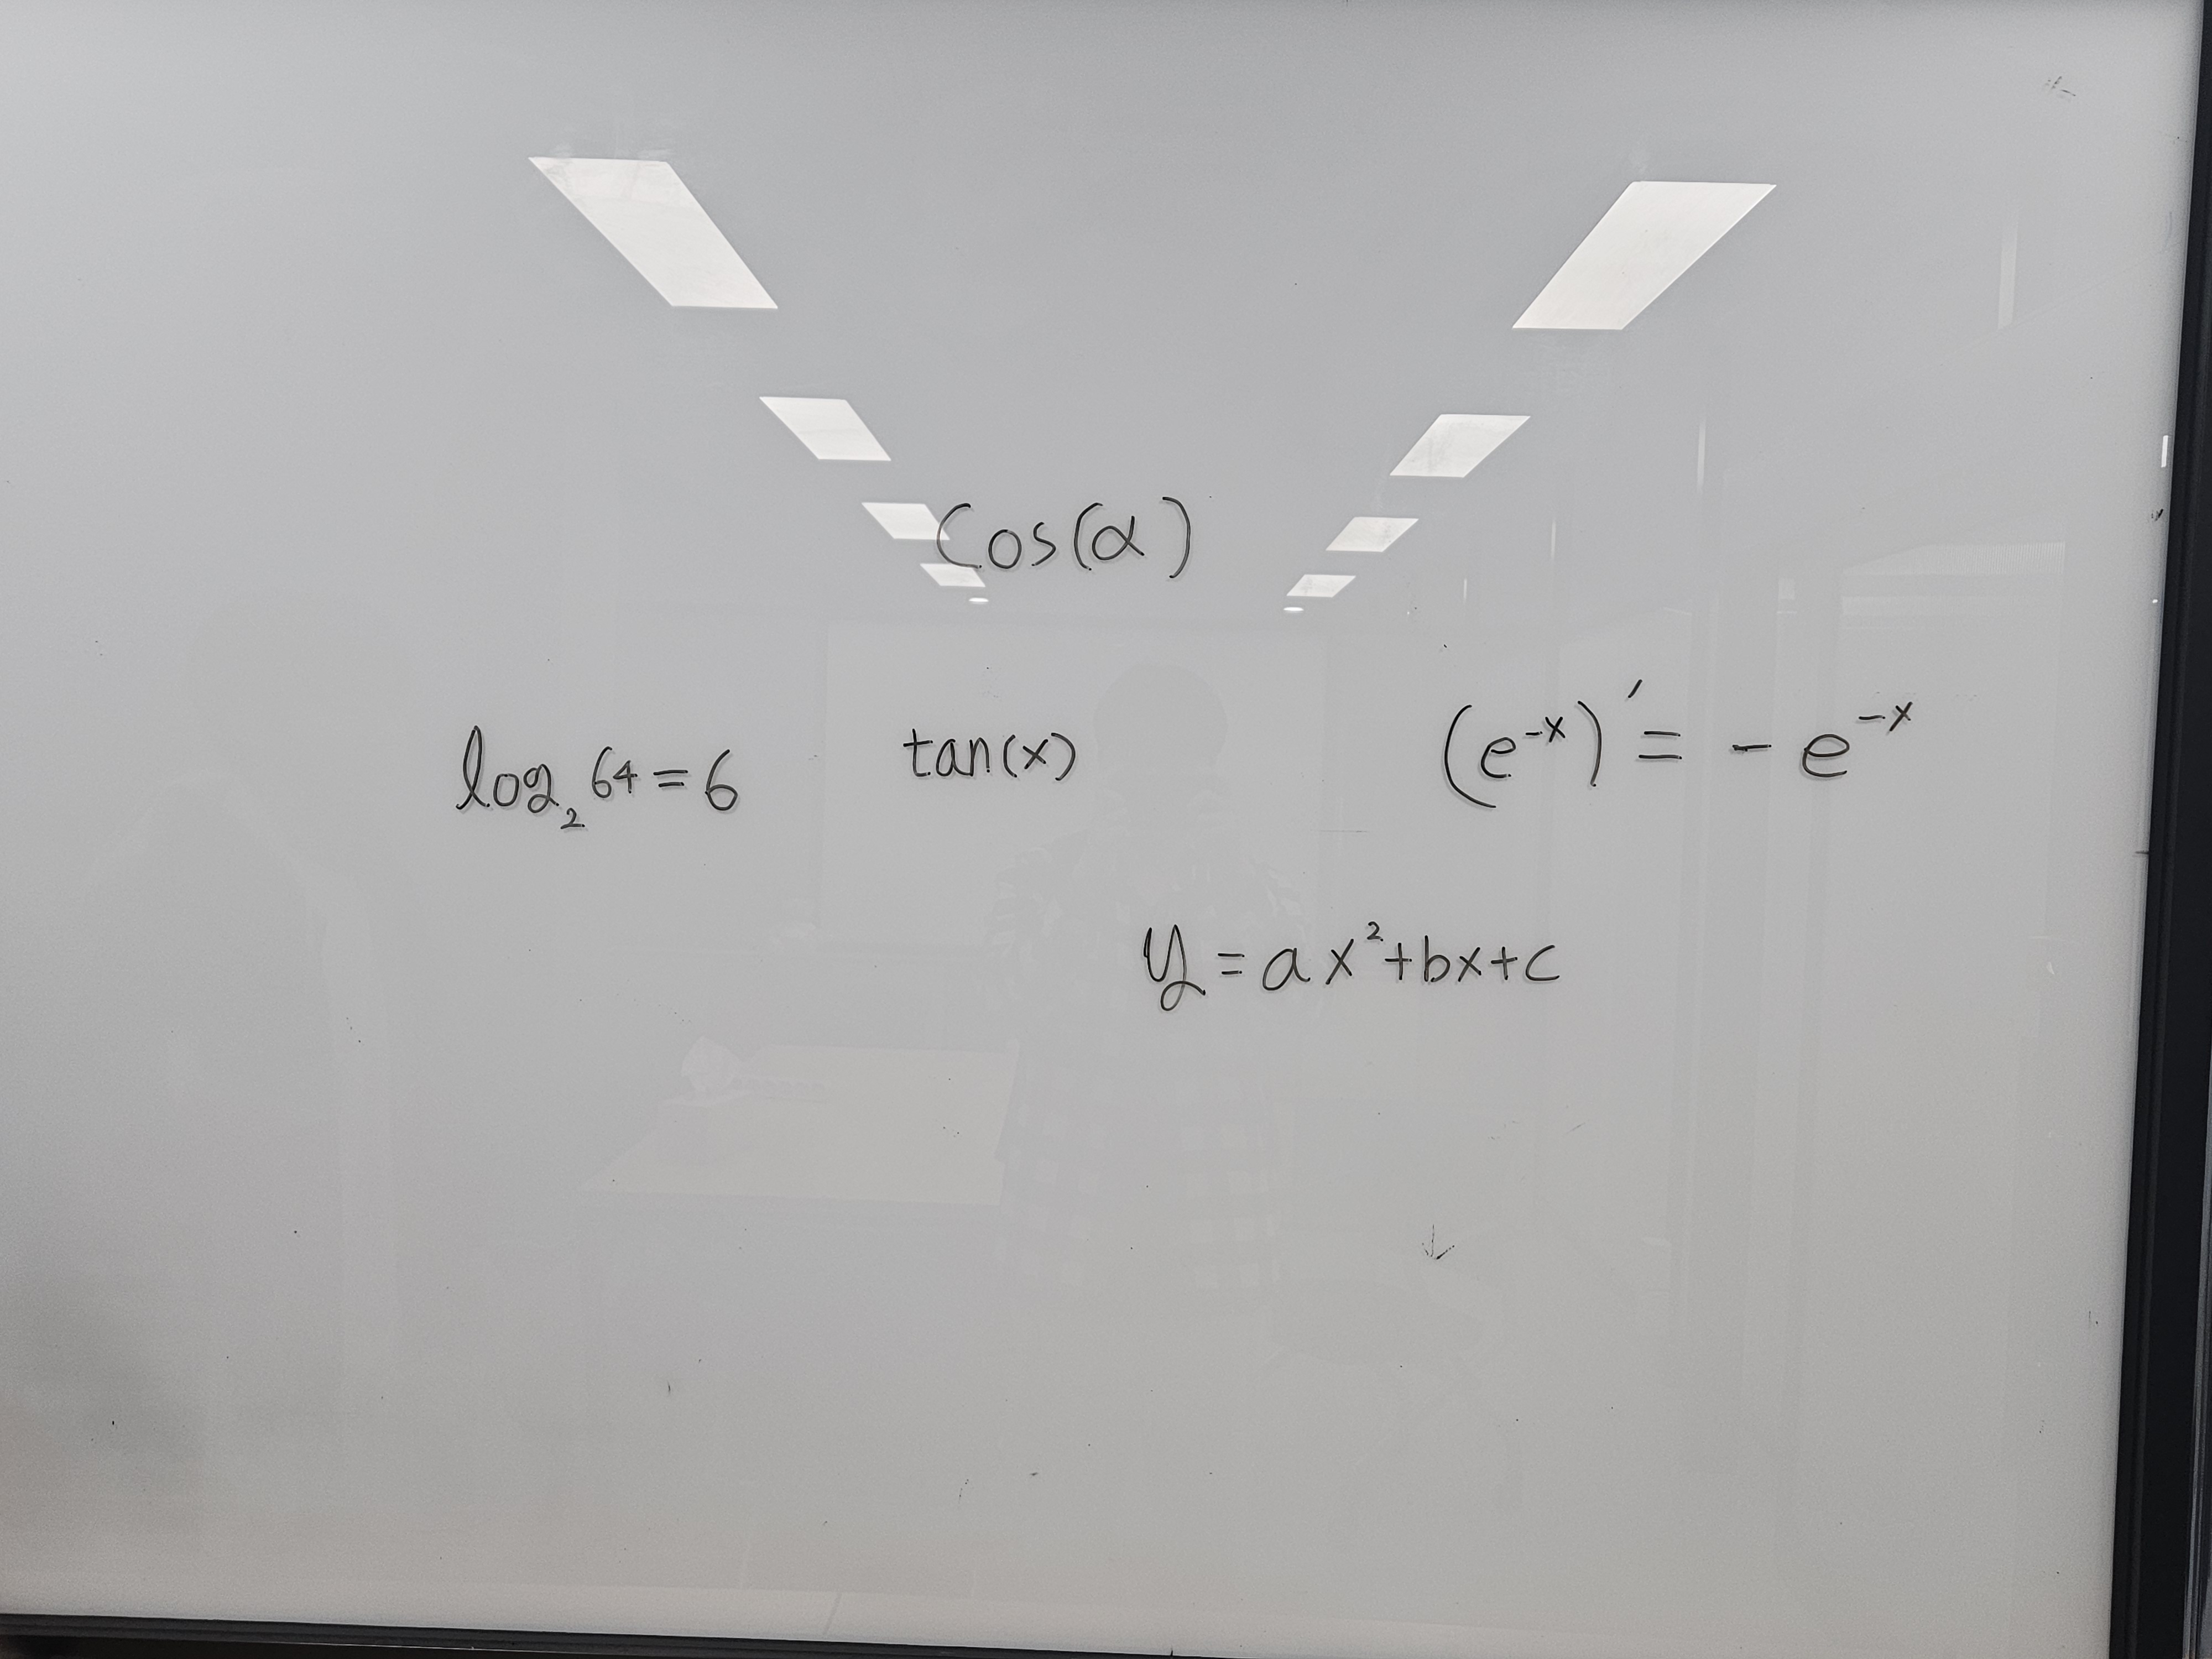 Cos(α)
log₂ 64 = 6
tan(x)
(e⁻ˣ)′ = - e⁻ˣ
y = ax² + bx + c